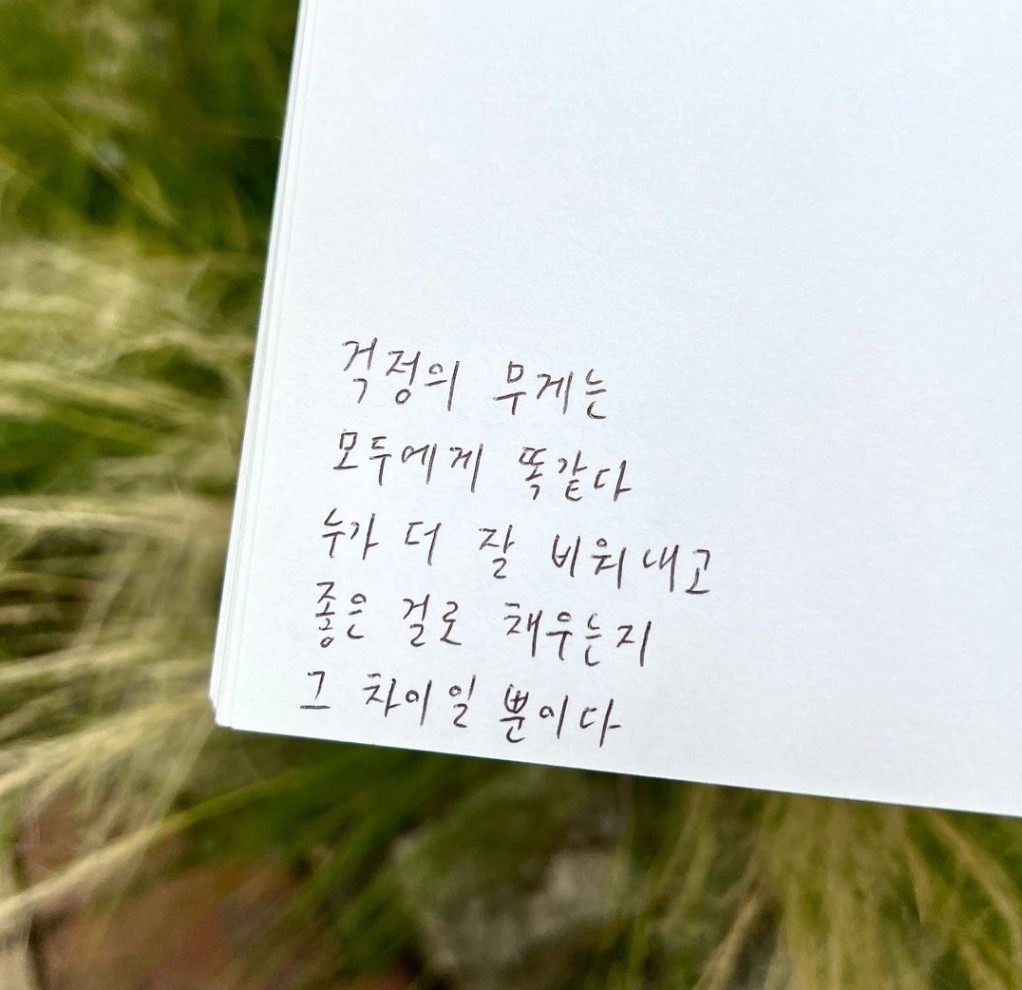 걱정의 무게는
모두에게 똑같다
누가 더 잘 비워내고
좋은 걸로 채우는지
그 차이일 뿐이다